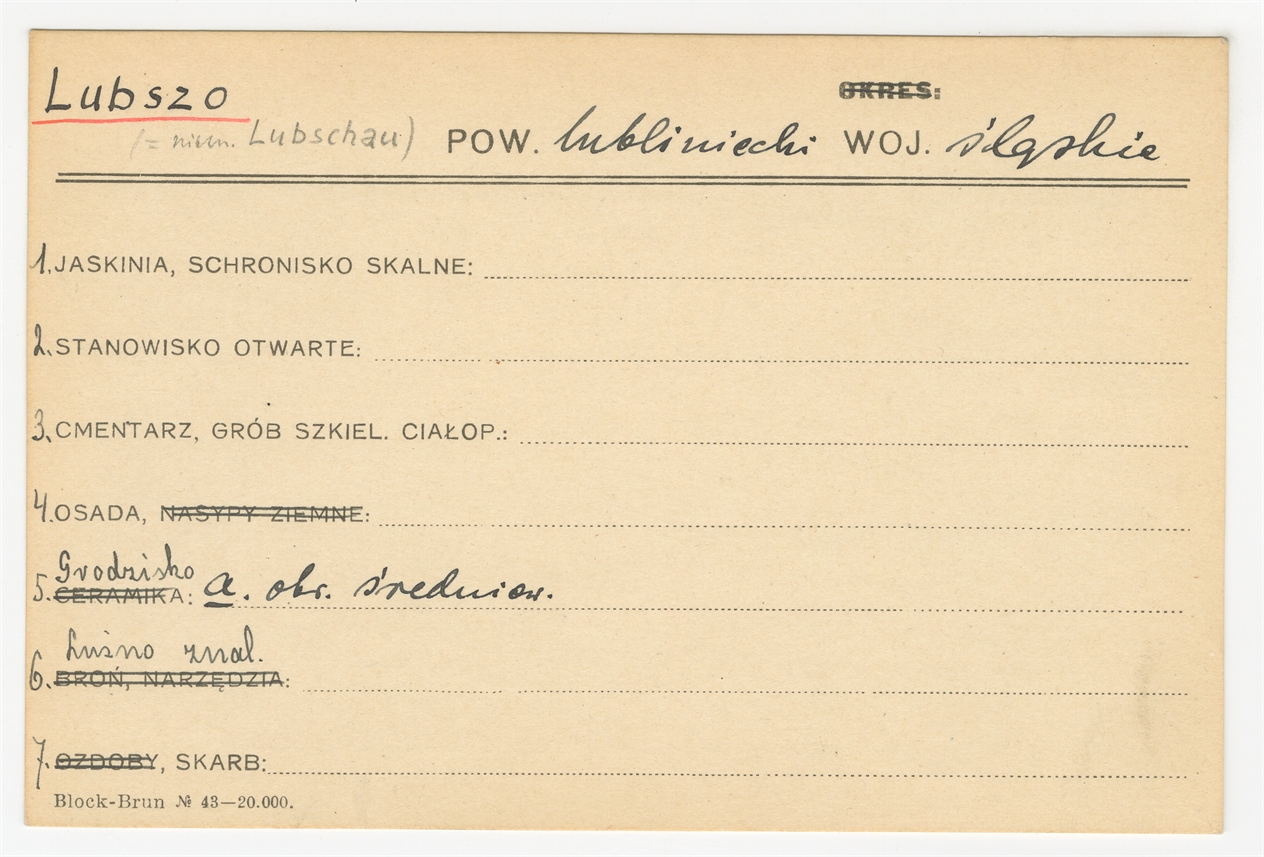 Lubszo
OKRES:
(= niem. Lubschau) POW. lubliniecki WOJ. śląskie
1. JASKINIA, SCHRONISKO SKALNE:
2. STANOWISKO OTWARTE:
3. CMENTARZ, GRÓB SZKIEL. CIAŁOP.:
4. OSADA, NASYPY ZIEMNE:
Grodzisko
5. CERAMIKA: a. okr. średniow.
Luźno znal.
6. BROŃ, NARZĘDZIA:
7. OZDOBY, SKARB:
Block-Brun № 43—20.000.